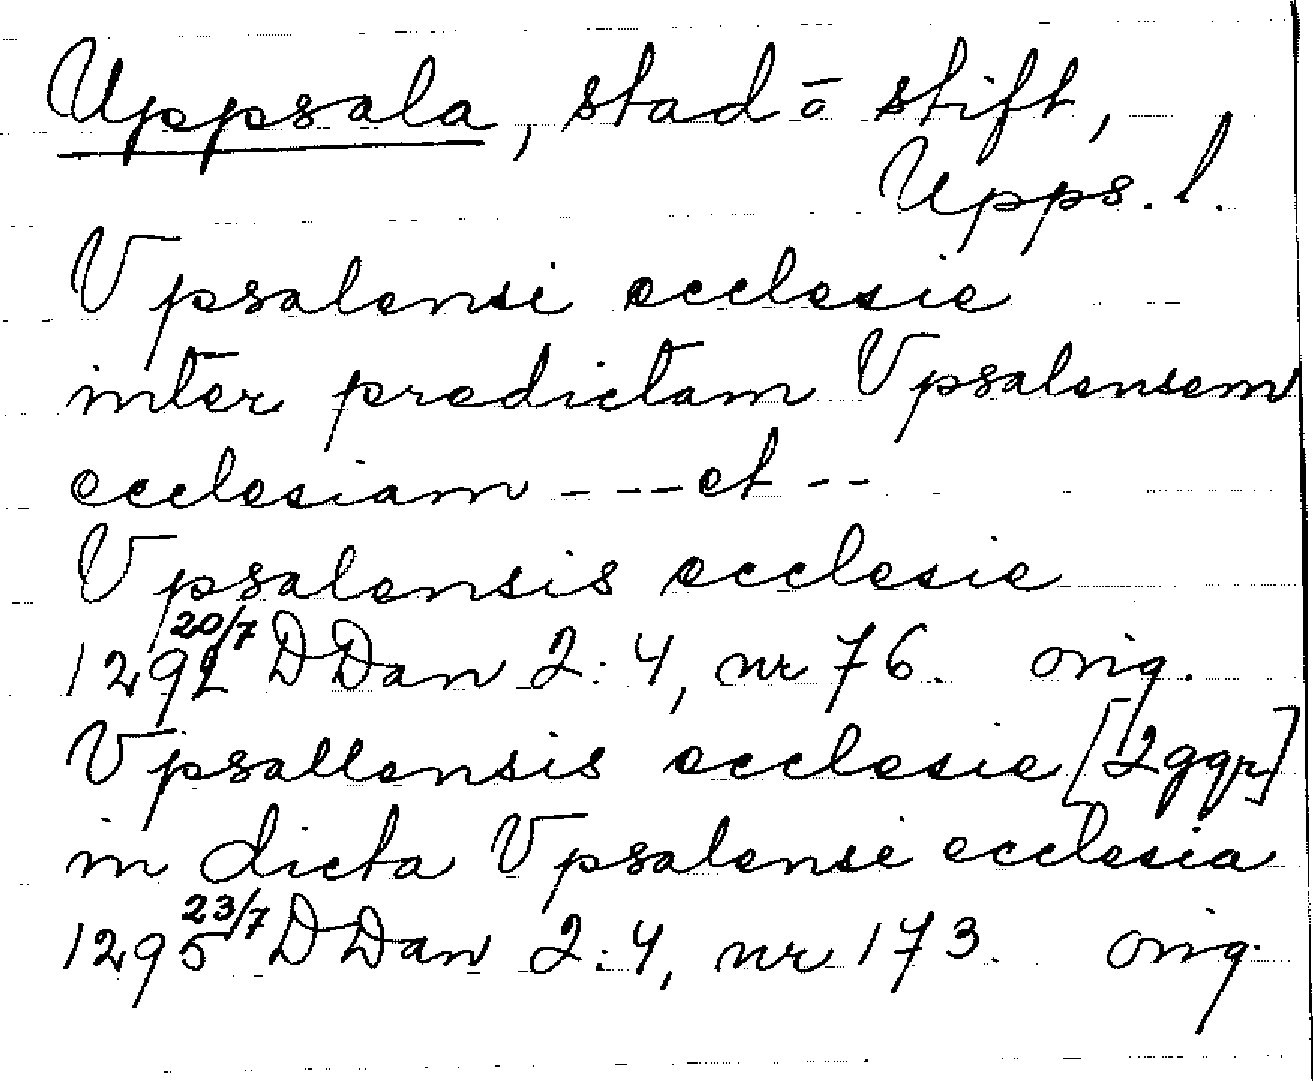 Uppsala, stad o stift,
Upps. l.
Vpsalensi ecclesie
inter predictam Vpsalensem
ecclesiam - --- et - -
Vpsalensis ecclesie
1292 20/7 DDan 2:4, nr 76. orig.
Vpsallensis ecclesie [2 ggr]
in dicta Vpsalensi ecclesia
1295 23/7 DDan 2:4, nr 173. orig.